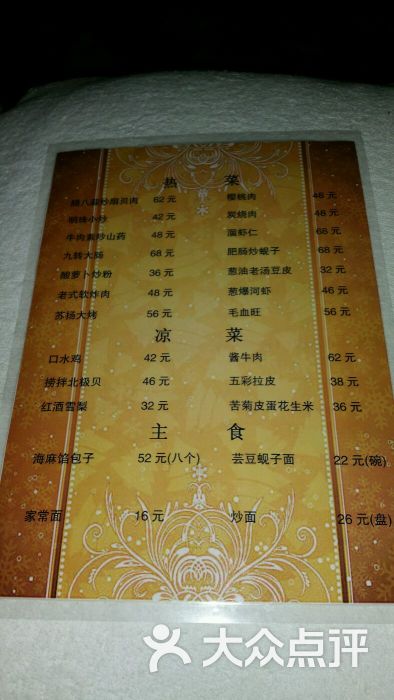 热 菜
腊八蒜炒扇贝肉 62 元 樱桃肉 48 元
明珠小炒 42 元 炭烧肉 48 元
牛肉素炒山药 48 元 溜虾仁 58 元
九转大肠 68 元 肥肠炒蚬子 68 元
酸萝卜炒粉 36 元 葱油老汤豆皮 32 元
老式软炸肉 48 元 葱爆河虾 46 元
苏扬大烤 56 元 毛血旺 56 元
凉 菜
口水鸡 42 元 酱牛肉 62 元
捞拌北极贝 46 元 五彩拉皮 38 元
红酒雪梨 32 元 苦菊皮蛋花生米 36 元
主 食
海麻馅包子 52 元(八个) 芸豆蚬子面 22 元(碗)
家常面 16 元 炒面 26 元(盘)
大众点评